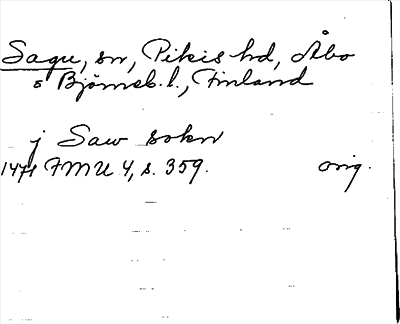 Sagu, sn, Pikis hd, Åbo
o Björneb. l., Finland
j Saw sokn
1471 FMU 4, s. 359. orig.